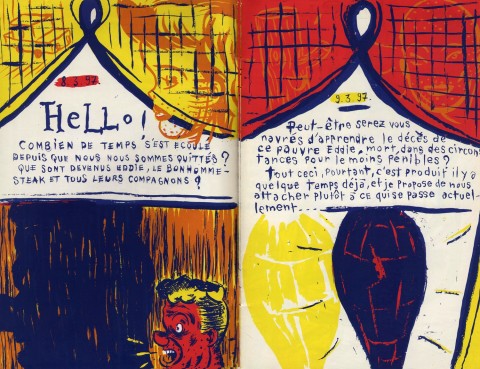 8.3.97
HeLLo!
COMBIEN DE TEMPS S'EST ECOULÉ
DEPUIS QUE NOUS NOUS SOMMES QUITTÉS?
QUE SONT DEVENUS EDDIE, LE BONHOMME-
STEAK ET TOUS LEURS COMPAGNONS?
9.3.97.
Peut-être serez vous
navrés d'apprendre le décès de
ce pauvre Eddie, mort, dans des circons
tances pour le moins pénibles?
Tout ceci, pourtant, c'est produit il y a
quelque temps déjà, et je propose de nous
attacher plutôt à ce qui se passe actuel-
lement....